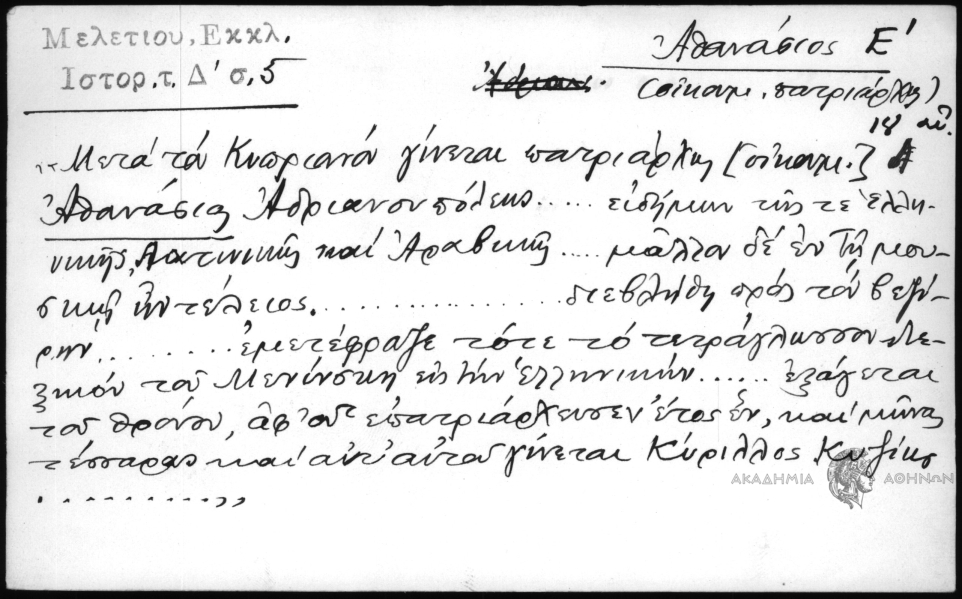 Μελετίου, Εκκλ.
Ιστορ. τ. Δ' σ. 5
Ἀθανάσιος Ε'
(οἰκουμ. πατριάρχης)
18 αἰ.
"Μετά τόν Κυπριανόν γίνεται πατριάρχης [οἰκουμ.]
Ἀθανάσιος Ἀδριανουπόλεως..... εἰδήμων τῆς τε Ἑλλη-
νικῆς, Λατινικῆς καί Ἀραβικῆς .... μᾶλλον δέ ἐν τῇ μου-
σικῇ ἦν τέλειος. .............. διεβλήθη πρός τόν βεζύ-
ρην ........ ἐμετέφραζε τότε τό τετράγλωσσον Λε-
ξικόν τοῦ Μενίνσκη εἰς τήν Ἑλληνικήν...... ἐξάγεται
τοῦ θρόνου, ἀφ' οὗ ἐπατριάρχευσεν ἔτος ἕν, καί μῆνας
τέσσαρας καί ἀντ' αὐτοῦ γίνεται Κύριλλος Κυζίκου
. . . . . . . . . . ,,
ΑΚΑΔΗΜΙΑ ΑΘΗΝΩΝ